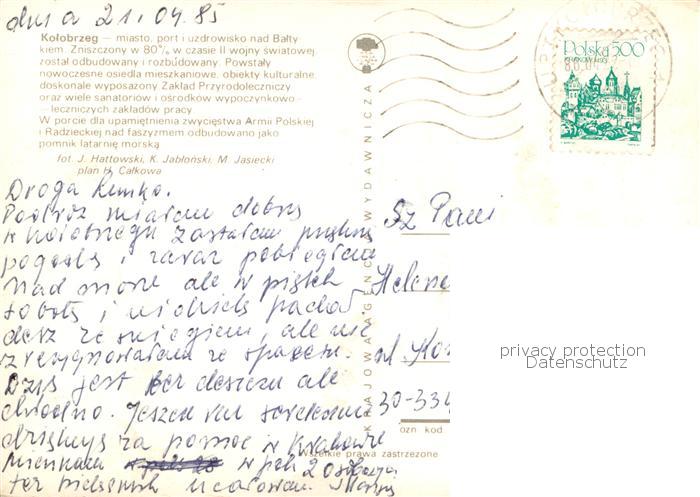 dnia 21.04.85
Kołobrzeg — miasto, port i uzdrowisko nad Bałty
kiem. Zniszczony w 80% w czasie II wojny światowej,
został odbudowany i rozbudowany. Powstały
nowoczesne osiedla mieszkaniowe, obiekty kulturalne,
doskonale wyposażony Zakład Przyrodoleczniczy
oraz wiele sanatoriów i ośrodków wypoczynkowo-
-leczniczych zakładów pracy.
W porcie dla upamiętnienia zwycięstwa Armii Polskiej
i Radzieckiej nad faszyzmem odbudowano jako
pomnik latarnię morską
fot. J. Hattowski, K. Jabłoński, M. Jasiecki
plan H. Całkowa
KRAJOWA AGENCJA WYDAWNICZA
Polska 500
Droga
Podróż miałam dobrą
w Kołobrzegu zastałam piękną
pogodę i zaraz pobiegłam
nad morze ale w piątek
sobotę i niedzielę padał
deszcz ze śniegiem, ale nie
zrezygnowałam ze spaceru.
Dziś jest bez deszczu ale
chłodno. Jeszcze raz serdecznie
dziękuję za pomoc w Krakowie
Mieszkam w pok 2 osobowym
Sz Pani
Helena
ul
30-334
ozn kod
Wszelkie prawa zastrzeżone
privacy protection
Datenschutz